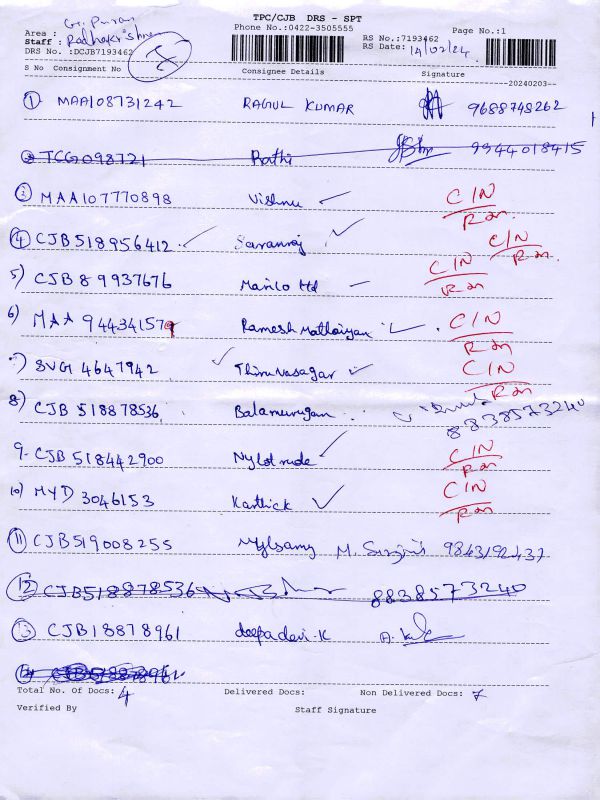 TPC/CJB DRS - SPT
Phone No.:0422-3505555
Page No.:1
Area : G. Puram
Staff : Radhakrishnan
DRS No.:DCJB7193462
RS No.:7193462
RS Date: 14/02/24
S No Consignment No Consignee Details Signature
20240203
1 MAA108731242 RAGUL KUMAR 9688748262
TCG098721 Rathi 9944018415
2 MAA107770898 Vishnu C/N
4 CJB518956412 Saranraj C/N
5) CJB89937676 Marico ltd C/N
6) MAA944341579 Ramesh Mathaiyan C/N
SVG4647942 Thiruvasagar C/N
8) CJB 518878536 Balamurugan 8838573240
9- CJB 518442900 C/N
10) MYD 3046153 Karthick C/N
11 CJB519008255 Mylsamy
12 CJB518878536 8838573240
13 CJB18878961 deepadevi.K
Total No. of Docs: 4 Delivered Docs: Non Delivered Docs: 7
Verified By Staff Signature